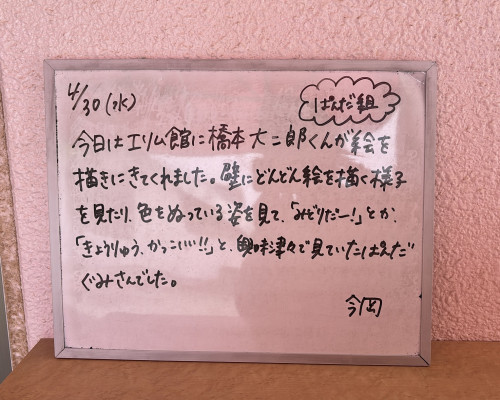 4/30(水)
ぱんだ組
今日はエリム館に橋本大二郎くんが絵を
描きにきてくれました。壁にどんどん絵を描く様子
を見たり、色をぬっている姿を見て、「みどりだー!」とか、
「きょうりゅう、かっこいい!!」と、興味津々で見ていたぱんだ
ぐみさんでした。
今岡